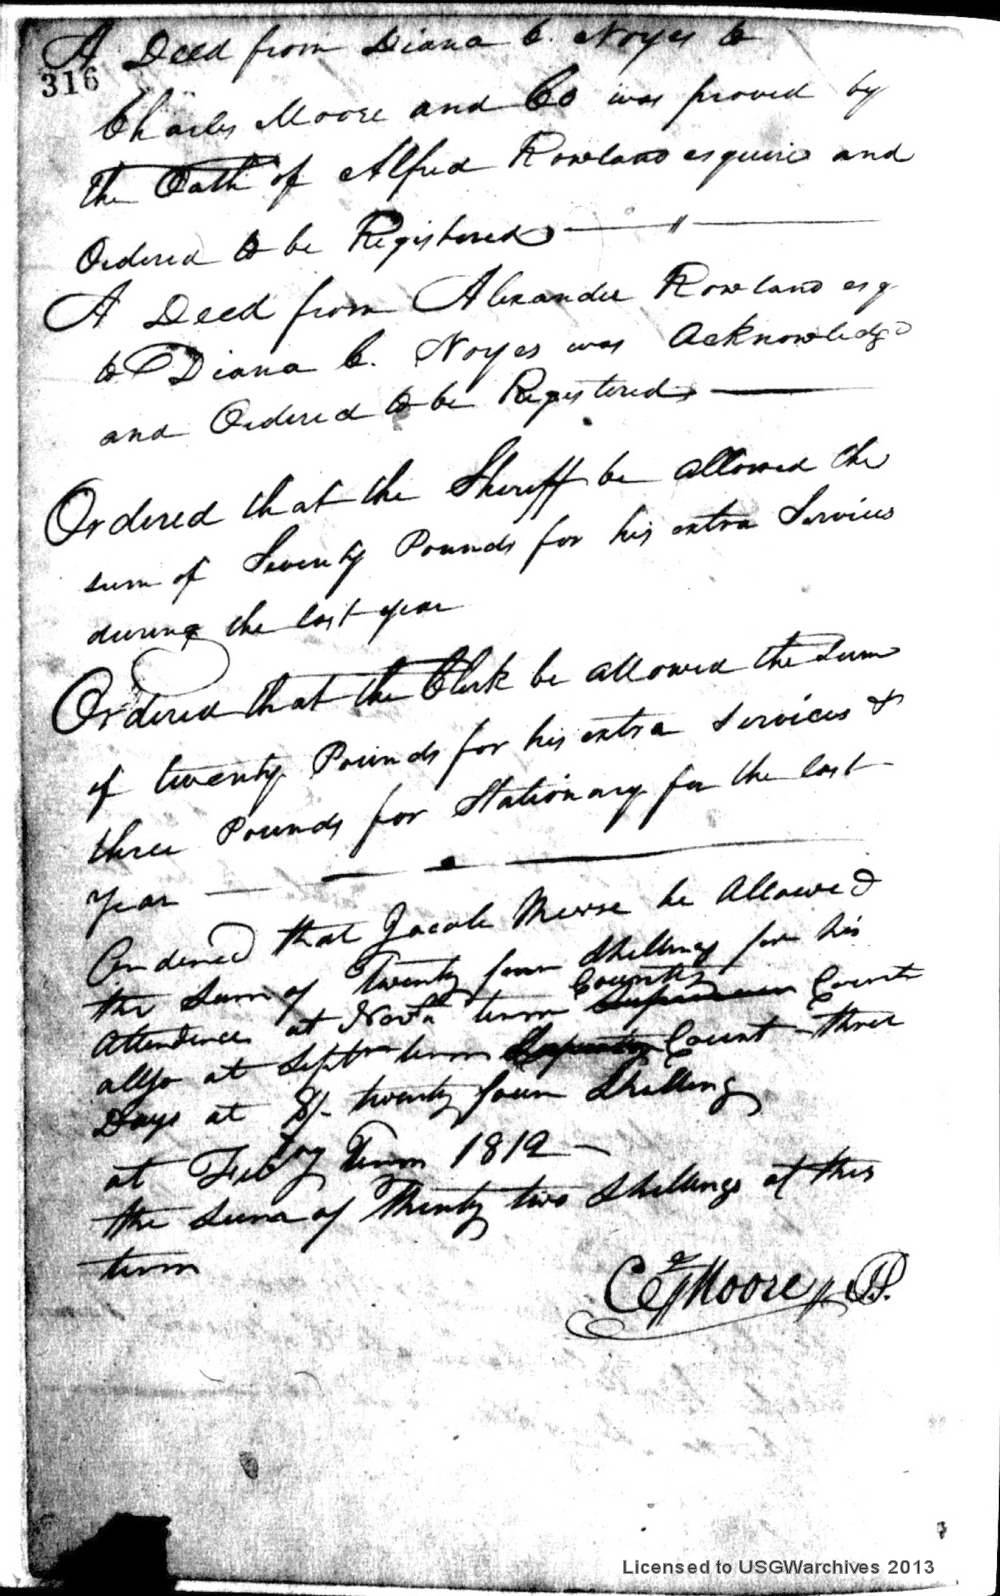 A Deed from Diana C. Noyes to
316
Charles Moore and Co was proved by
the Oath of Alfred Rowland esquire and
Ordered to be Registered
A Deed from Alexander Rowland esq
to Diana C. Noyes was Acknowledgd
and Ordered to be Registered
Ordered that the Sheriff be allowed the
sum of Seventy Pounds for his extra Services
during the last year
Ordered that the Clerk be allowed the sum
of twenty Pounds for his extra services &
three Pounds for Stationary for the last
year
Ordered that Jacob Merse be Allowed
the Sum of Twenty four Shillings for his
County
Attendence at Novr term Court
allso at Septr term Court three
Days at 8/- twenty four Shilling
at Febray Term 1812
the Sum of Thirty two Shillings at this
term
Moore
Licensed to USGWarchives 2013